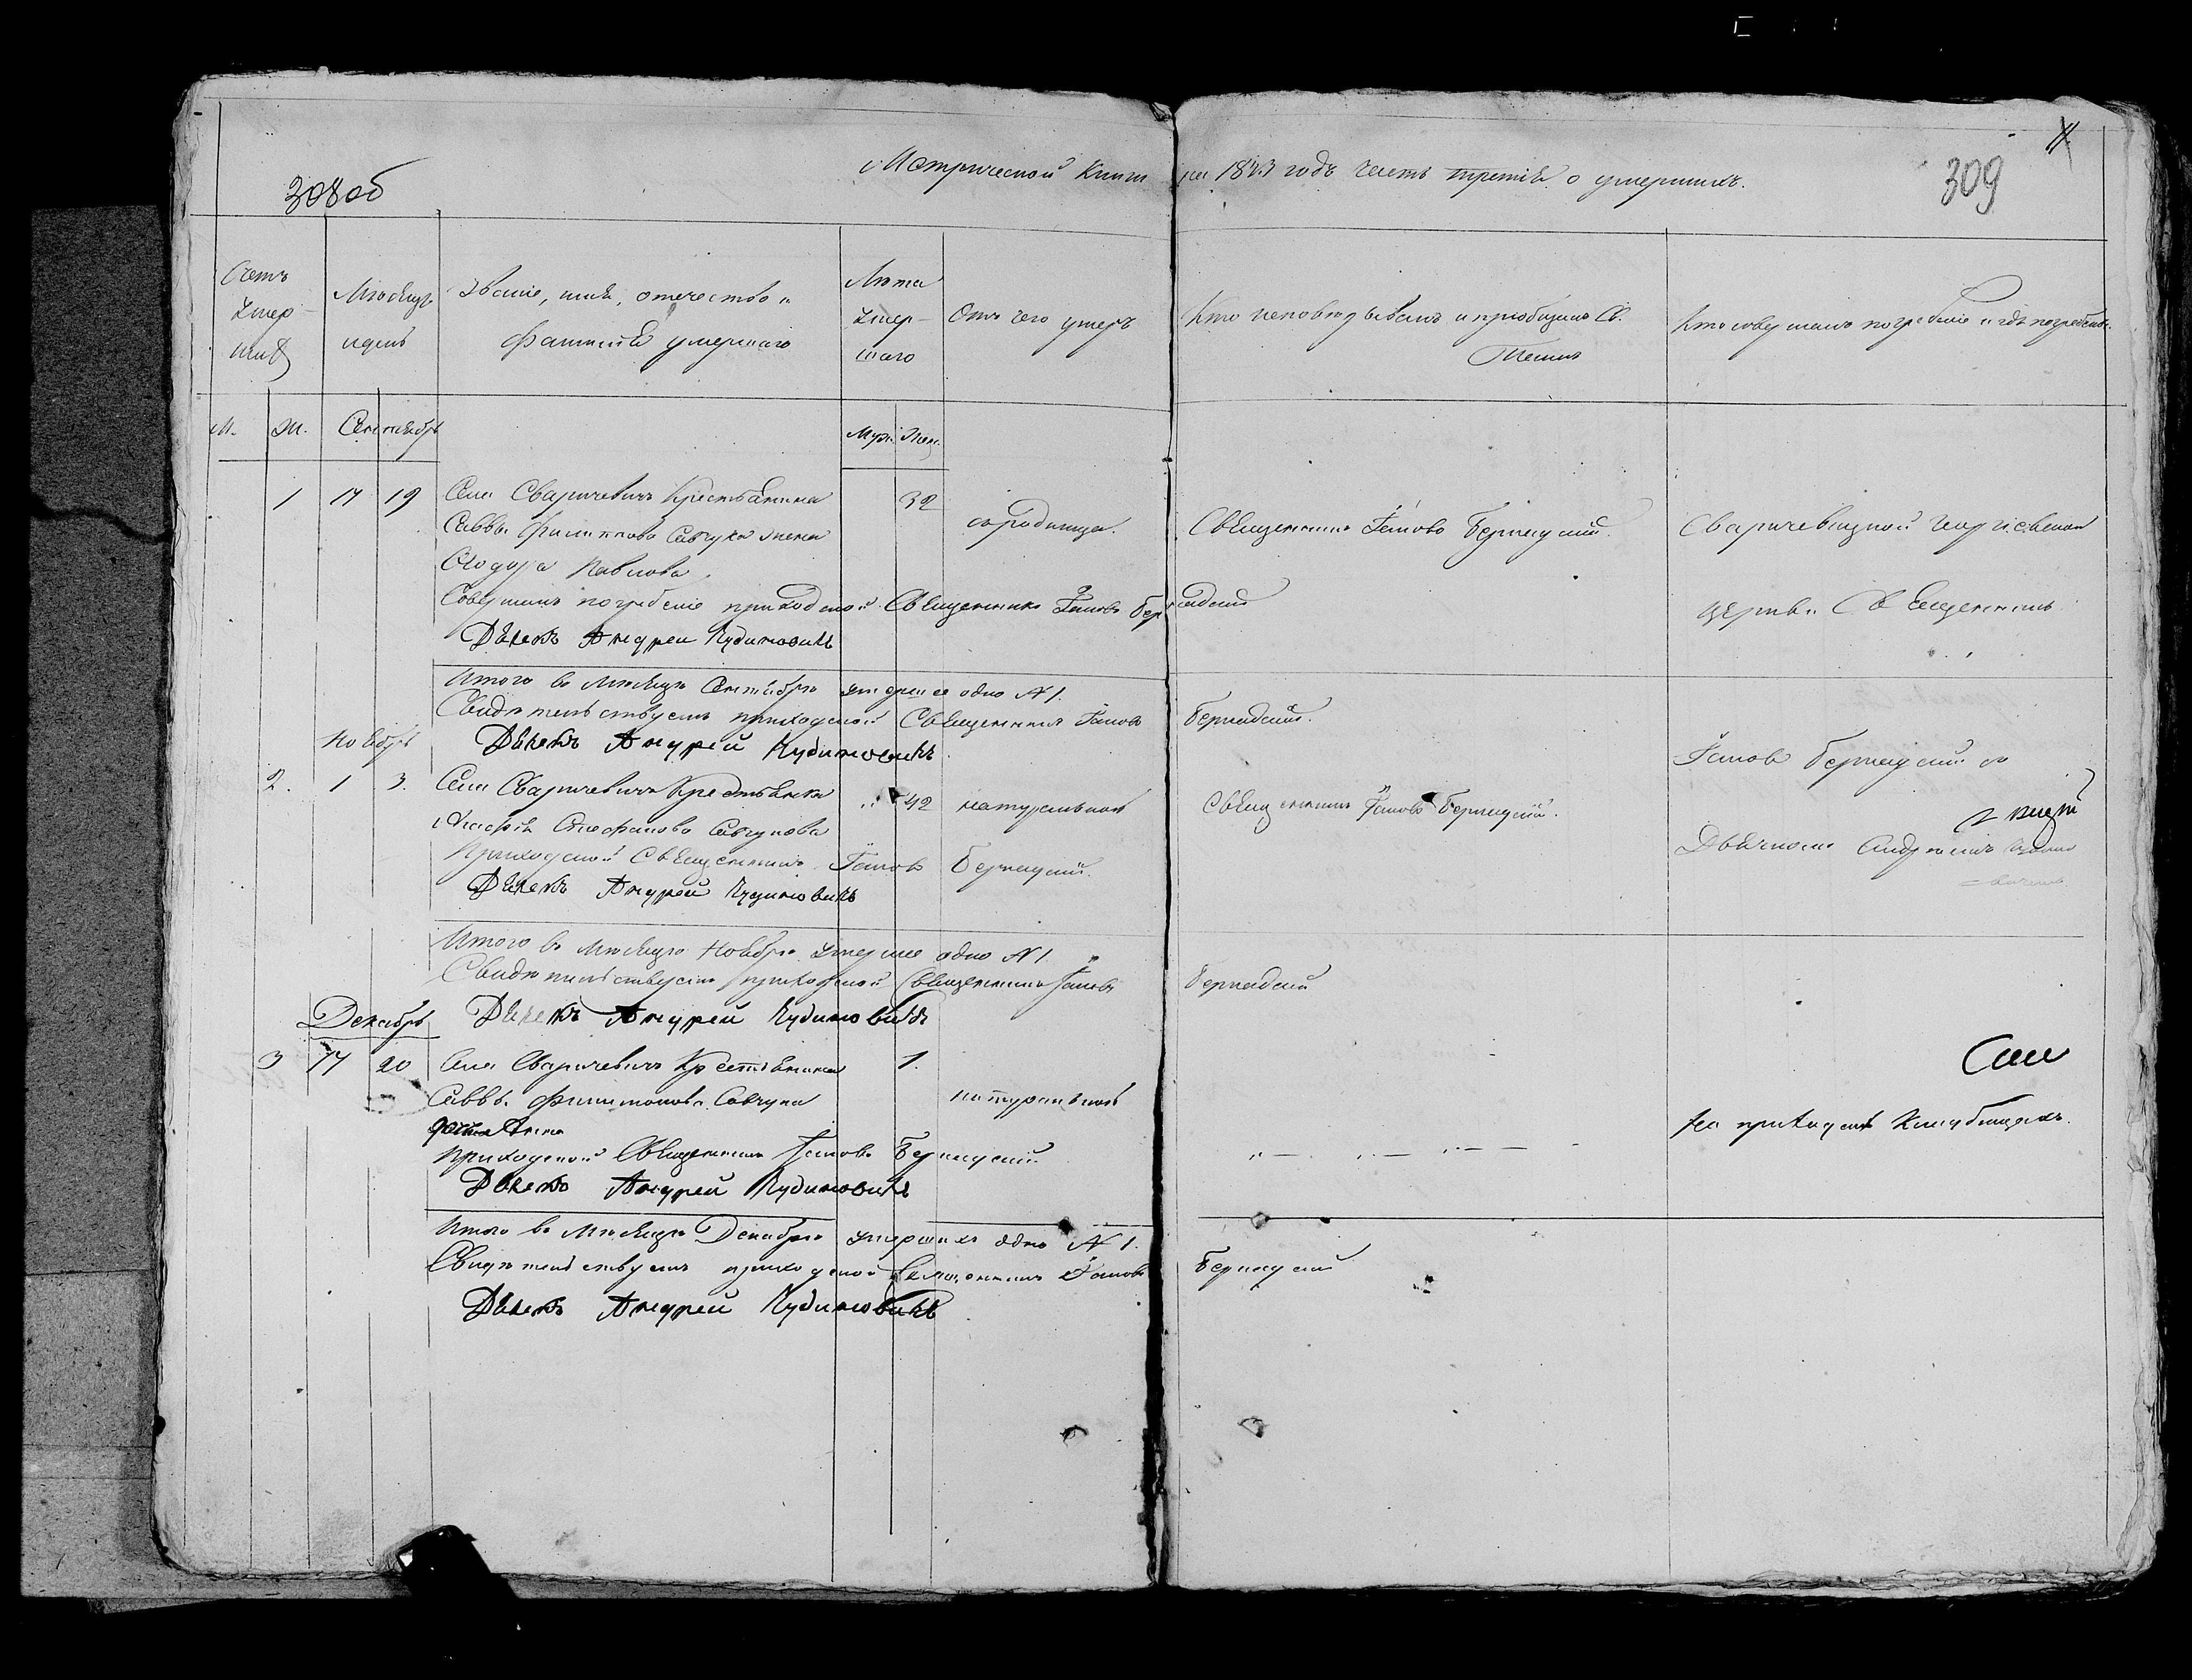 308об
Метрической Книги на 1843 годъ часть третія о умершихъ.
309
Счетъ умер-шихъ
Мѣсяцъ и день
Званіе, имя, отечество и фамилія умершаго
Лѣта умер-шаго
Отъ чего умеръ
Кто исповѣдывалъ и пріобщалъ Св. Таинъ
Кто совершалъ погребеніе и гдѣ погребены.
М. Ж. Сентябрь
Муж. Жен.
1 17 19 Села Сваричевичъ Крестьянина 32
Саввы Филиппова Савчука жена
Феодора Павлова
съ родинца.
Священникъ Іаковъ Бернадскій
Сваричевицкой Георгіевской
церкви Священникъ
Совершалъ погребеніе приходской Священникъ Іаковъ Бернадскій
Дьячекъ Андрей Кудиновичъ
Итого въ Мѣсяцѣ Сентябрѣ умершее одно N 1.
Свидѣтельствуетъ приходской Священникъ Іаковъ Бернадскій.
Дьячекъ Андрей Кудиновичъ
Ноябрь
2. 1 3. Села Сваричевичъ Крестьянка 42 натуральной
Стефанова Савчукова
Священникъ Іаковъ Бернадскій.
Іаковъ Бернадскій съ
Дьячкомъ Андреемъ
Приходской Священникъ Іаковъ Бернадскій.
Дьячекъ Андрей Кудиновичъ
Итого въ Мѣсяцѣ Ноябрѣ умершее одно N 1
Свидѣтельствуетъ приходской Священникъ Іаковъ Бернадскій
Дьячекъ Андрей Кудиновичъ
Декабрь
3 17 20 Села Сваричевичъ Крестьянина 1.
Саввы Филиппова Савчука натуральной
дочь Анна
на приходскихъ Кладбищахъ.
Приходской Священникъ Іаковъ Бернадскій
Дьячекъ Андрей Кудиновичъ
Итого въ Мѣсяцѣ Декабрѣ умершихъ одно N 1.
Свидѣтельствуетъ приходской Священникъ Іаковъ Бернадскій
Дьячекъ Андрей Кудиновичъ